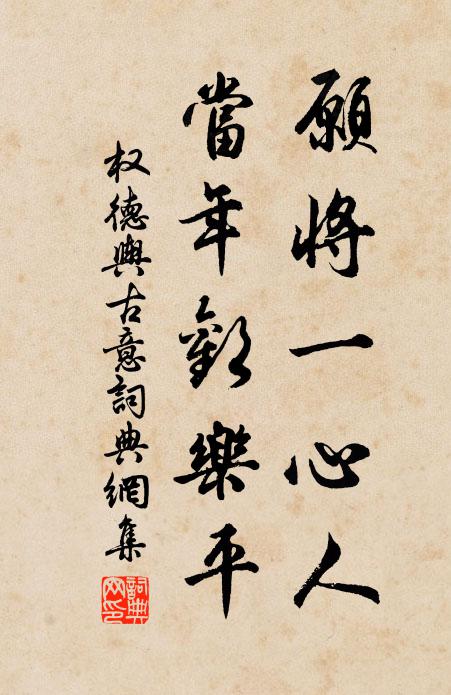 願將一心人
當年歡樂平
权德輿古意詞典網集
詞典網印